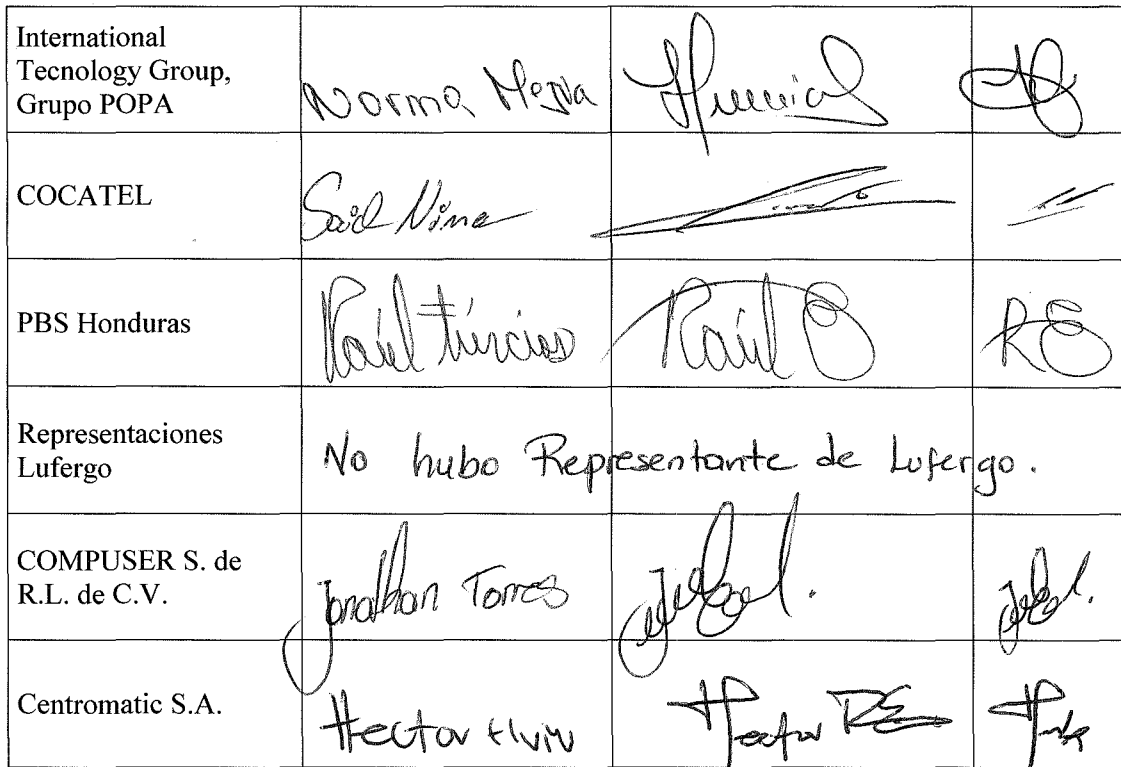 International
Tecnology Group,
Grupo POPA
Norma
COCATEL
Said Nima
PBS Honduras
Raúl Túrcios Raúl
Representaciones
Lufergo
No hubo Representante de Lufergo.
COMPUSER S. de
R.L. de C.V.
Jonathan Torres
Centromatic S.A.
Hector Hector